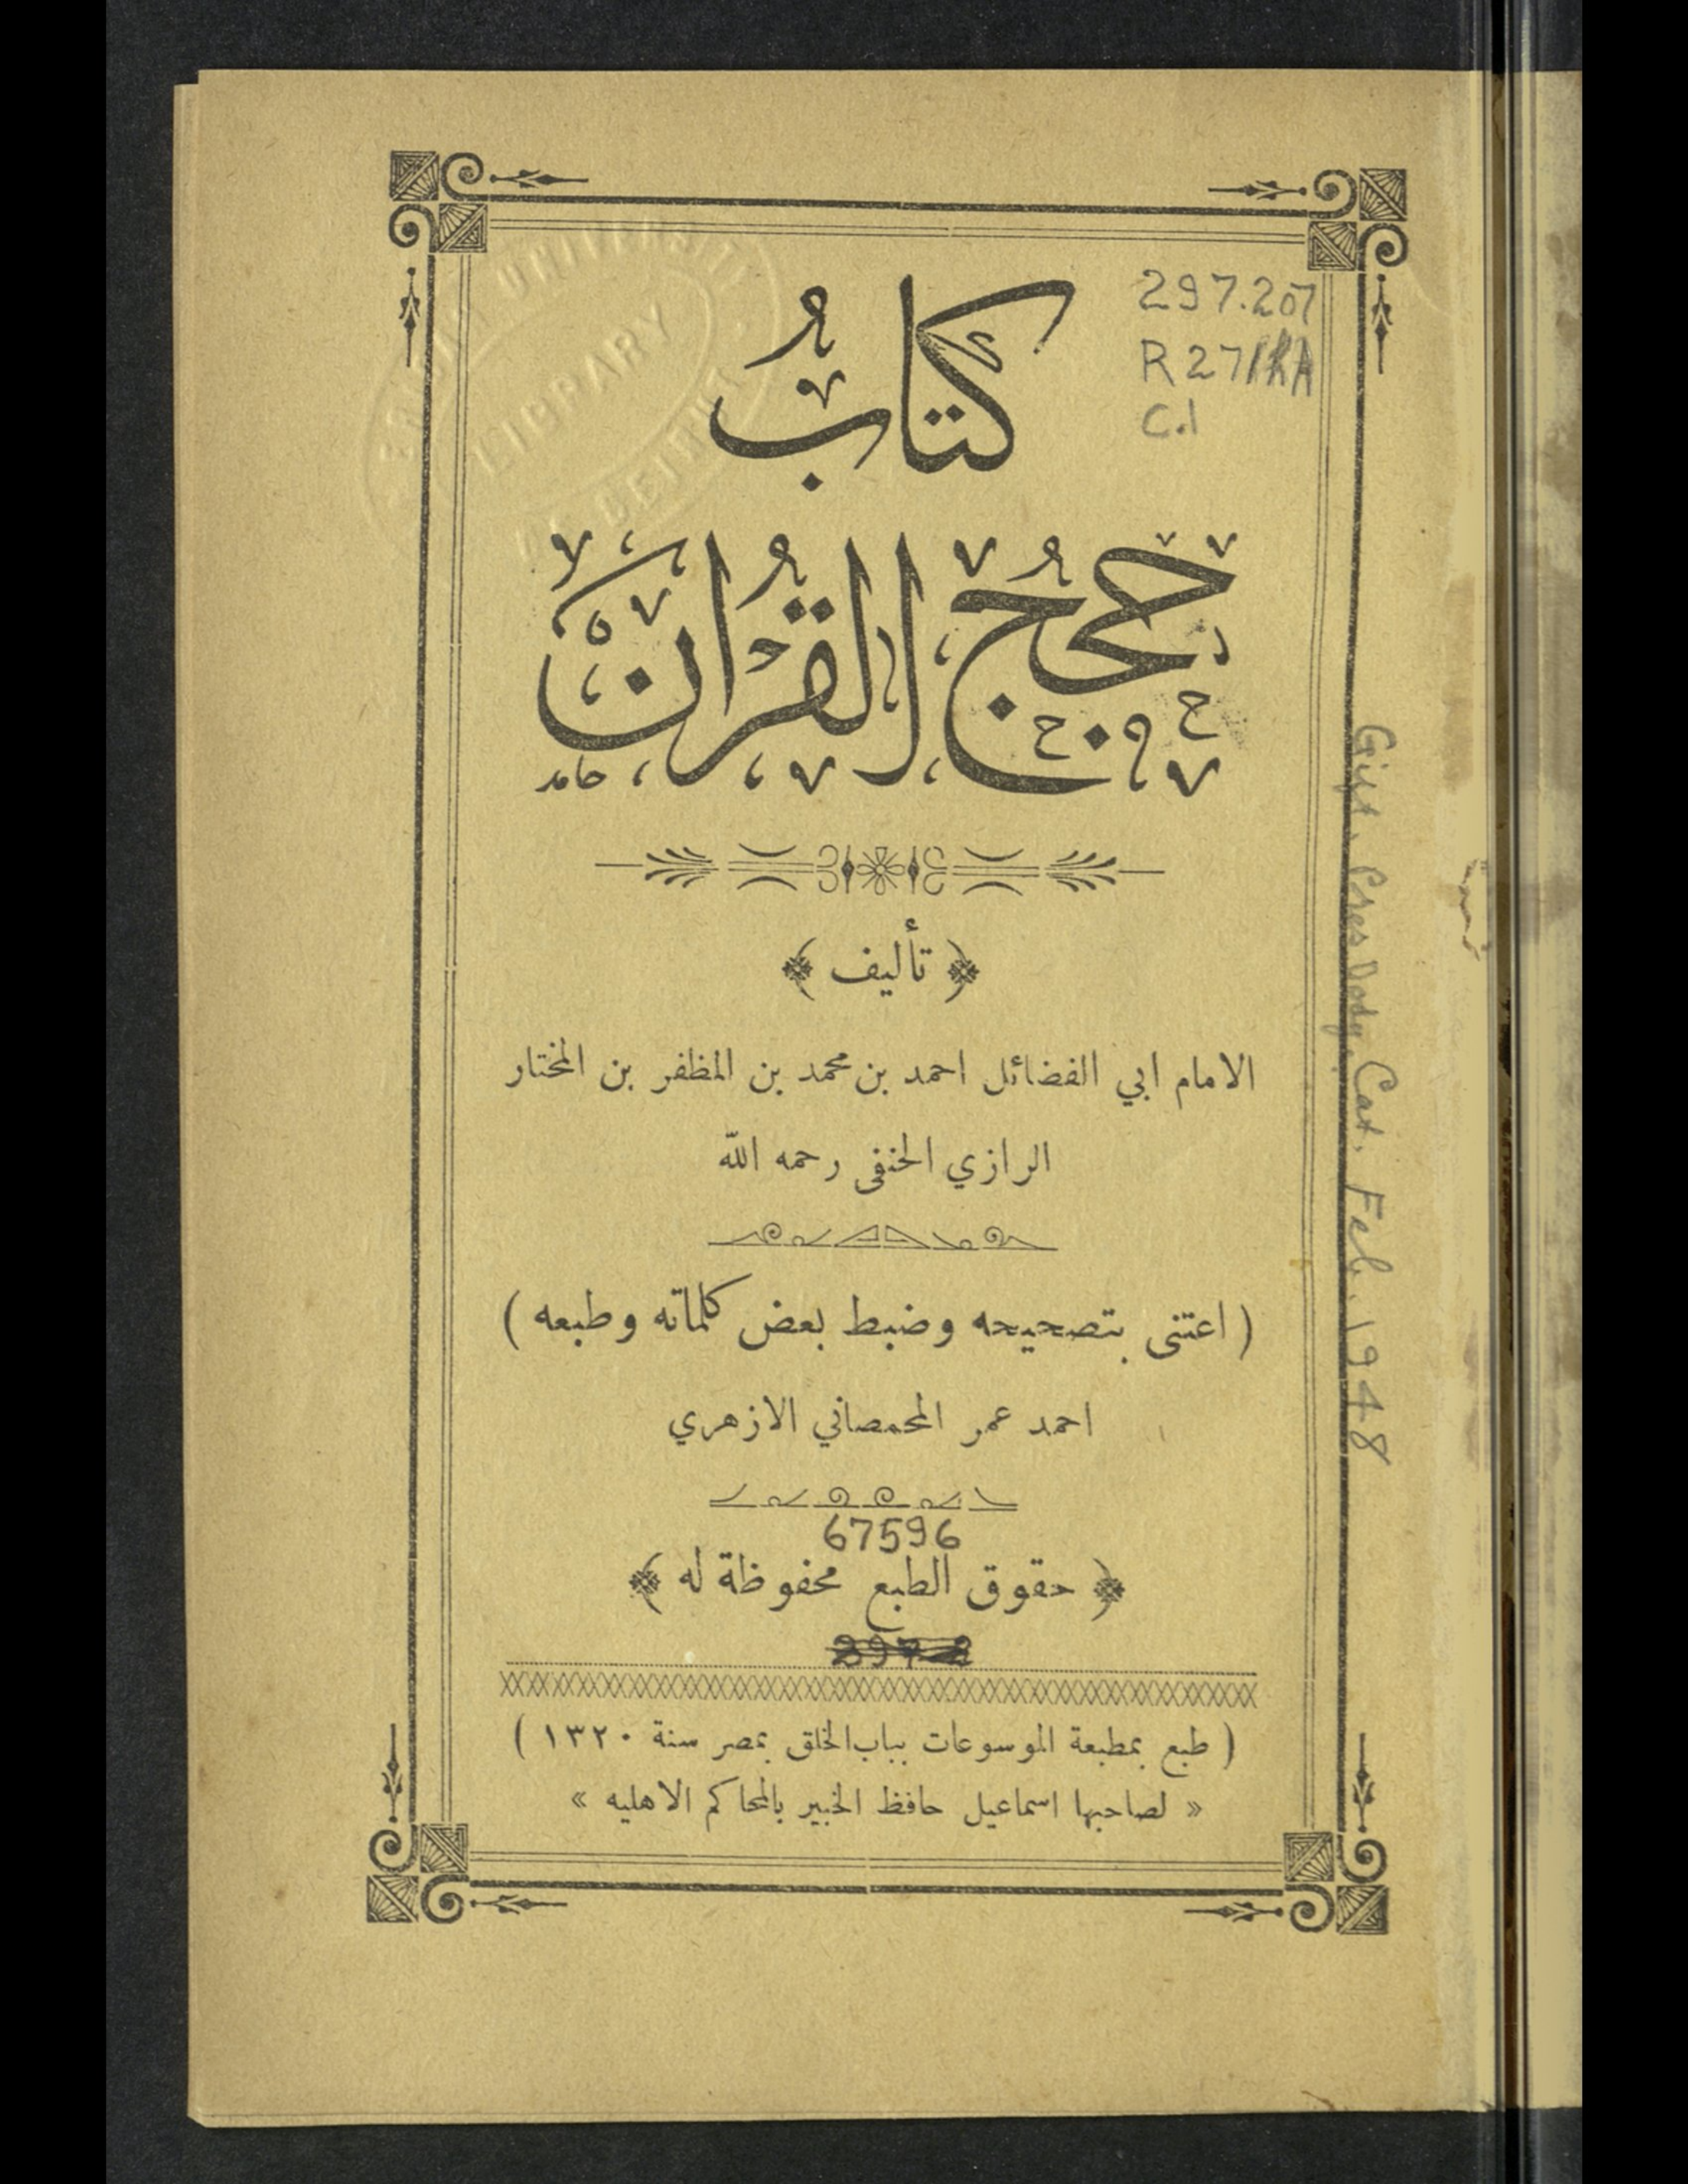 297.207
R271hA
C.1
كتابُ
حُجَجُ القُرْآن
حامد
﴿ تأليف ﴾
الامام ابي الفضائل احمد بن محمد بن المظفر بن المختار
الرازي الحنفى رحمه الله
( اعتنى بتصحيحه وضبط بعض كلماته وطبعه )
احمد عمر المحمصاني الازهري
67596
﴿ حقوق الطبع محفوظة له ﴾
( طبع بمطبعة الموسوعات بباب الخلق بمصر سنة ١٣٢٠ )
« لصاحبها اسماعيل حافظ الخبير بالمحاكم الاهليه »
Gift. Pres Dodge, Cat. Feb. 1948
LIBRARY